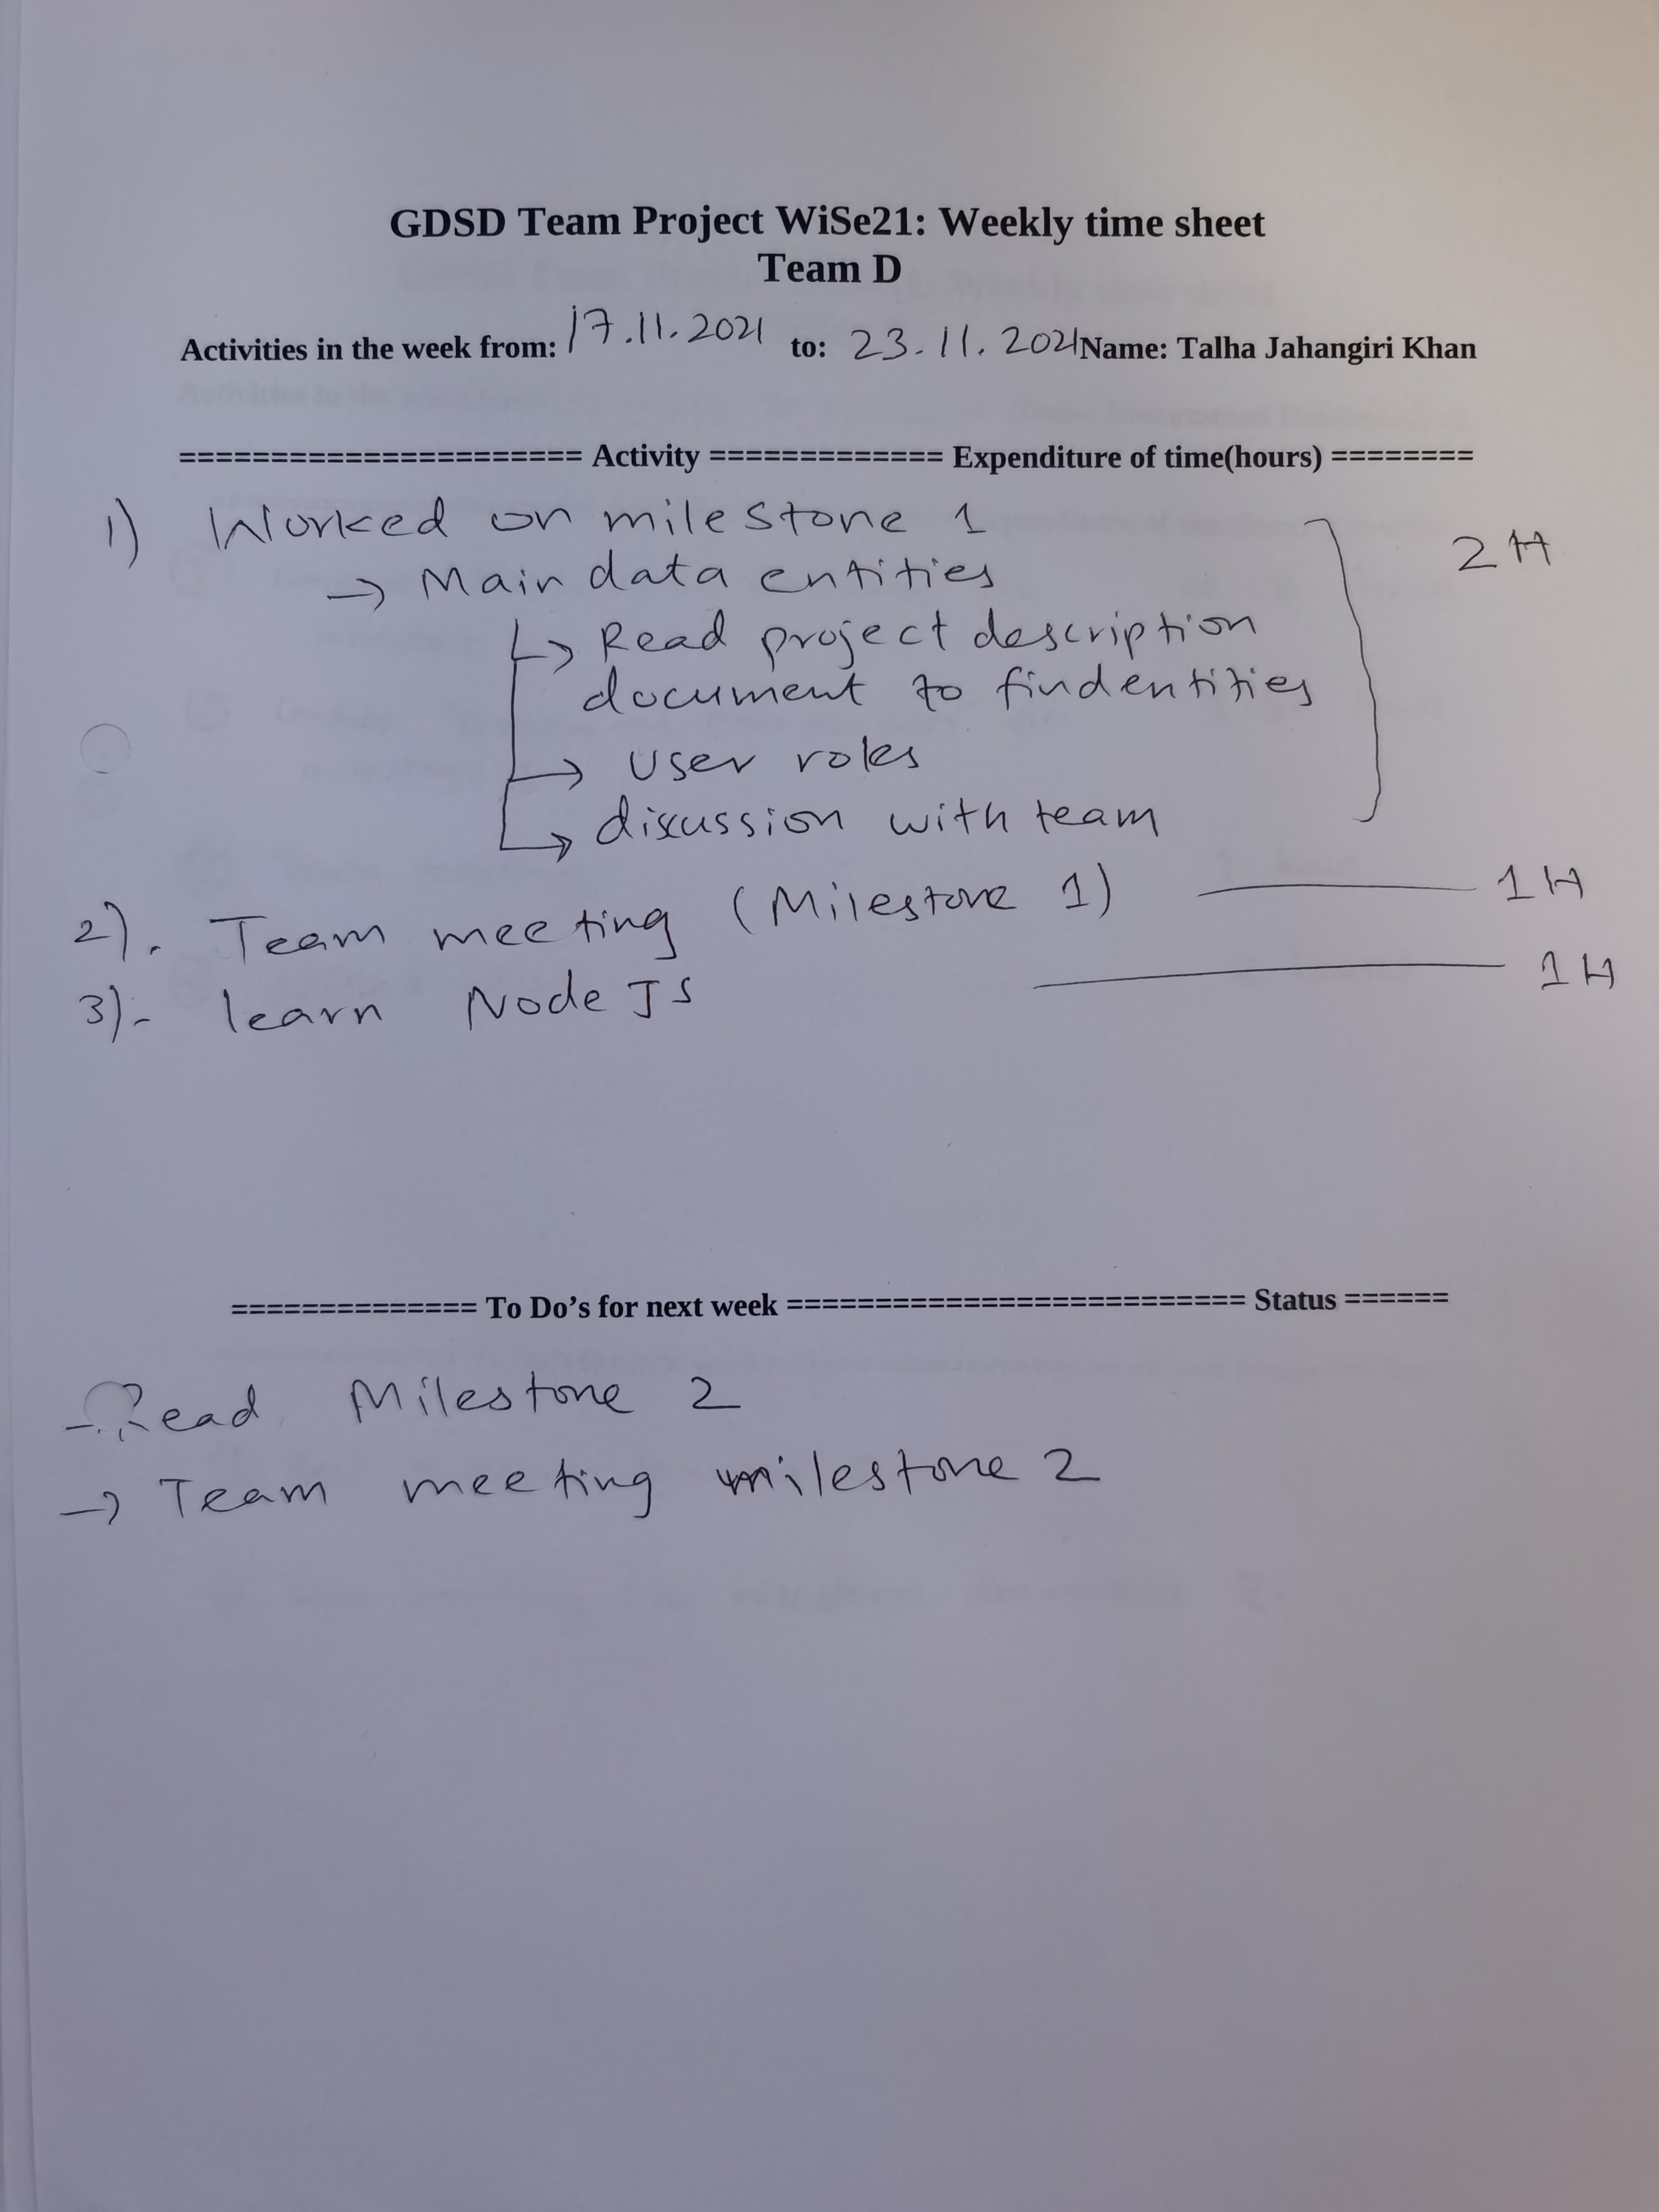 GDSD Team Project WiSe21: Weekly time sheet
Team D
Activities in the week from: 17.11.2021 to: 23.11.2021 Name: Talha Jahangiri Khan
====================== Activity ============= Expenditure of time(hours) ========
1) Worked on milestone 1 2H
→ Main data entities
↳ Read project description
document to find entities
→ User roles
↳ discussion with team
2). Team meeting (Milestone 1) — 1H
3)- learn Node JS — 1H
============== To Do’s for next week ========================== Status ======
- Read Milestone 2
→ Team meeting milestone 2